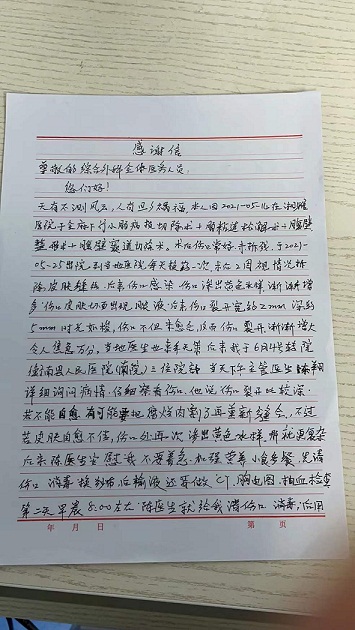 感谢信
尊敬的综合外科全体医务人员:
您们好!
天有不测风云,人有旦夕祸福,本人因2021-05-11在湘雅
医院于全麻下行小肠病损切除术+肠粘连松解术+腹壁
整形术+腹壁窦道切除术,术后伤口常好,未拆线,于2021-
05-25出院,到当地医院每天换药一次,术后2周视情况拆
除,皮肤钉,后来伤口感染,伤口渗出黄色水样,渐渐增
多,伤口皮肤切面出现脓液,后来伤口裂开宽约2mm深到
5mm时光如梭,伤口不但未愈合,反而伤口裂开,渐渐增大
令人焦急万分,当地医生也束手无策后来我于6月4号转院
南县人民医院(南院)三住院部,当天下午主管医生陈翔
详细询问病情,仔细察看伤口,他说,伤口裂开比较深,
若不能自愈,有可能要把腐烂肉割了再重新缝合,不过
若皮肤自愈不佳,伤口处再次渗出黄色水样,那就更复杂
后来陈医生安慰我不要着急,加强营养,小食多餐,先洗
伤口,消毒换纱布,后输液,还需做CT,胸电图,抽血检查
第二天早晨8:00左右,陈医生就给我清伤口,消毒,后用
年 月 日 第 页